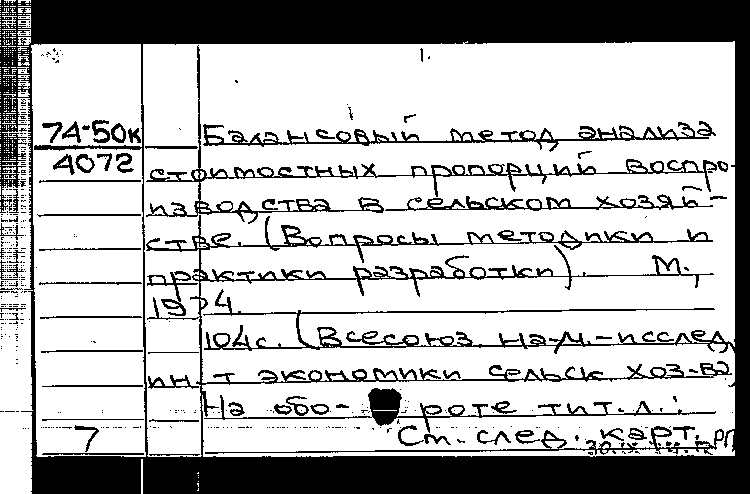 1.
74-50к
4072
Балансовый метод анализа
стоимостных пропорций воспро-
изводства в сельском хозяй-
стве. (Вопросы методики и
практики разработки). М.,
1974.
104с. (Всесоюз. на-уч.-исслед.
ин-т экономики сельск. хоз-ва)
На обо- роте тит. л.:
7
Ст. след. карт. РП